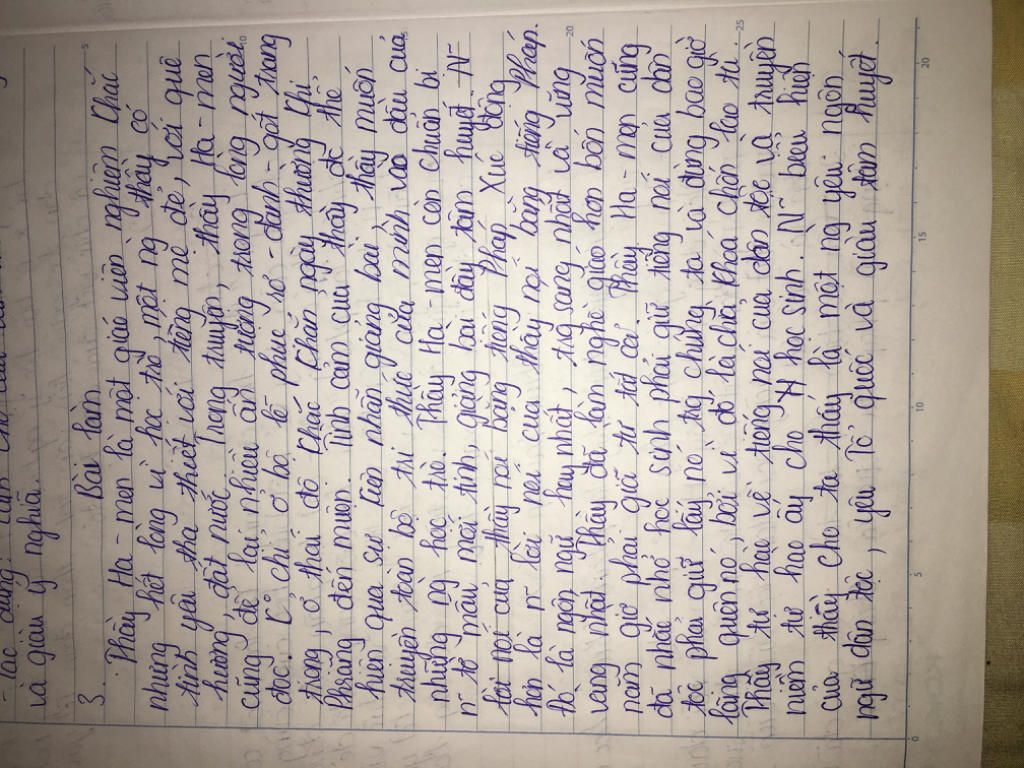 và giàu ý nghĩa.
3. Bài làm
Thầy Ha-men là một giáo viên nghiêm khắc
nhưng hết lòng vì học trò, một ng thầy có
tình yêu tha thiết với tiếng mẹ đẻ, với quê
hương, đất nước. Trong truyện, thầy Ha-men
cũng để lại nhiều ấn tượng trong lòng người
đọc. Kể chỉ ở bộ lễ phục sơ-danh-gót trang
trọng, ở thái độ khác hẳn ngày thường khi
Phrăng đến muộn. Tình cảm của thầy đc thể
hiện qua sự kiên nhẫn giảng bài, thầy muốn
truyền toàn bộ tri thức của mình vào đầu của
những ng học trò. Thầy Ha-men còn chuẩn bị
n~ tờ mẫu mới tinh, giảng bài đầy tâm huyết. N~
lời nói của thầy nói bằng tiếng Pháp. Xúc động
hơn là n~ lời nói của thầy nói bằng tiếng Pháp.
Đó là ngôn ngữ hay nhất, trg sáng nhất và vững
vàng nhất. Thầy đã làm nghề giáo hơn bốn mươi
năm giờ phải giã từ tất cả. Thầy Ha-men cũng
đã nhắc nhở học sinh phải giữ tiếng nói của dân
tộc phải giữ lấy nó trg chúng ta và đừng bao giờ
lãng quên nó, bởi vì đó là chìa khoá chốn lao tù.
Thầy tự hào về tiếng nói của dân tộc và truyền
niềm tự hào ấy cho học sinh. N~ biểu hiện
của thầy cho ta thấy là một ng yêu ngôn
ngữ dân tộc, yêu Tổ quốc và giàu tâm huyết.